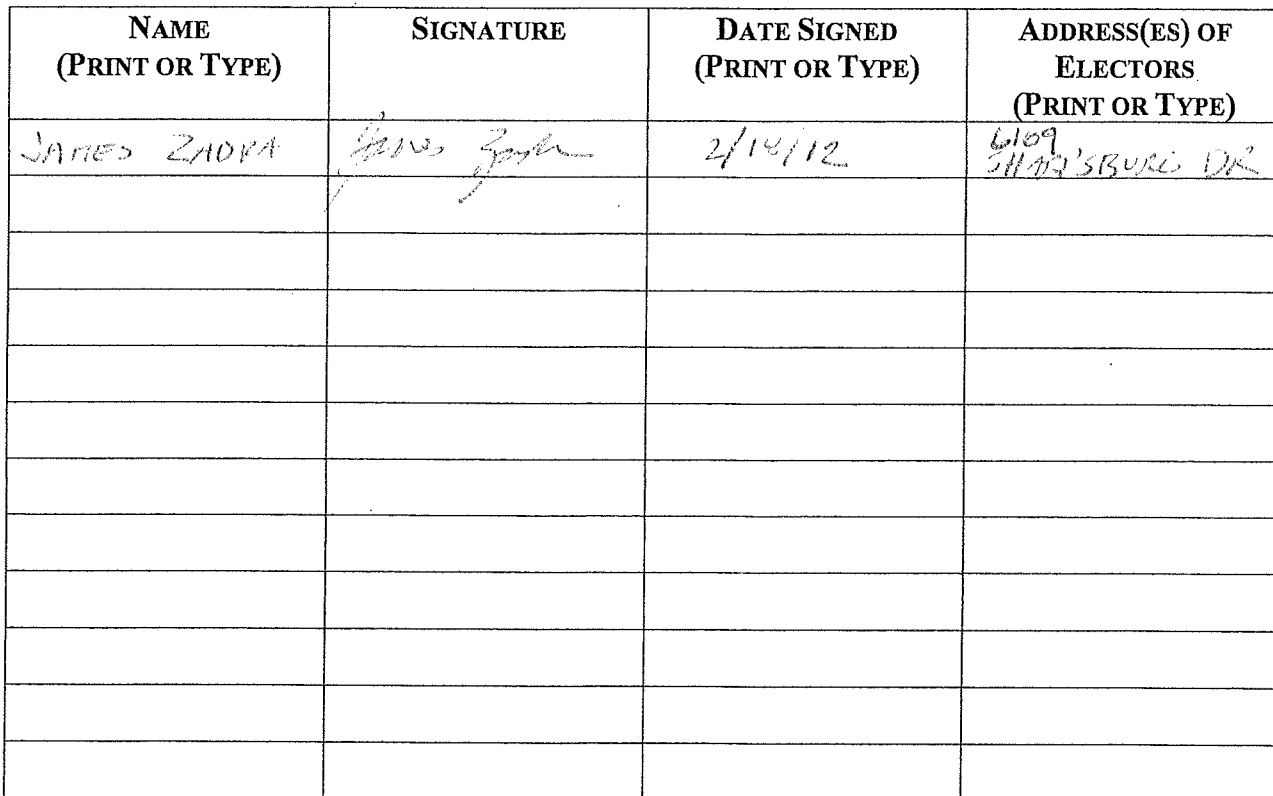 NAME
(PRINT OR TYPE)
SIGNATURE
DATE SIGNED
(PRINT OR TYPE)
ADDRESS(ES) OF
ELECTORS
(PRINT OR TYPE)
JAMES ZADRA
James
2/14/12
6109
SHARPSBURG DR